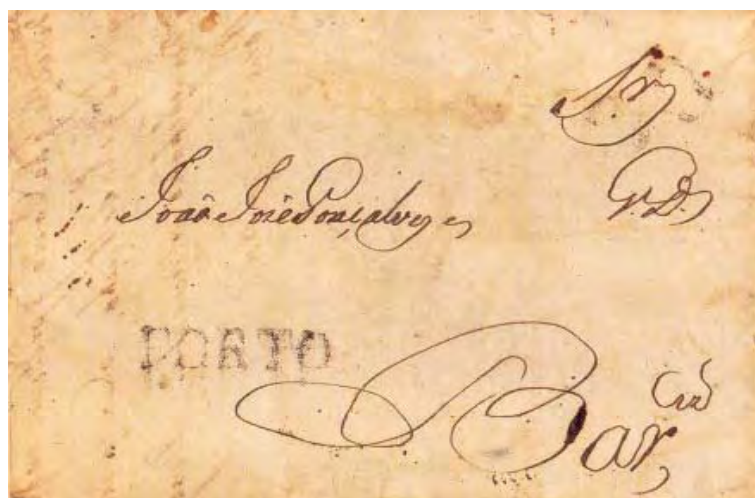 Sr
João José Gonçalves
G.D.
PORTO
Bar